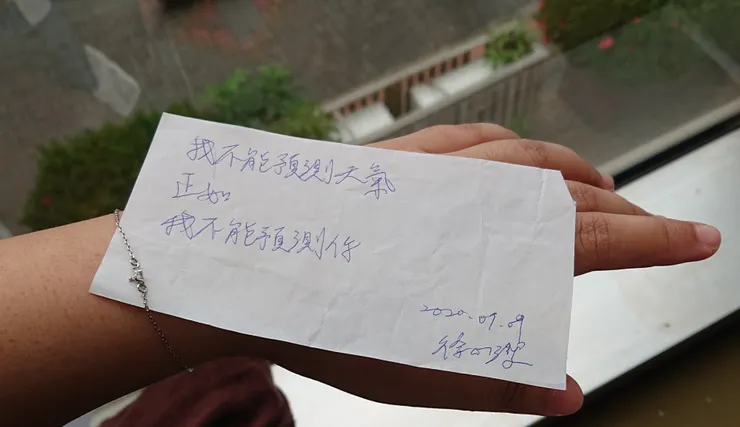 我不能預測天氣
正如
我不能預測你
2020.09.09
徐